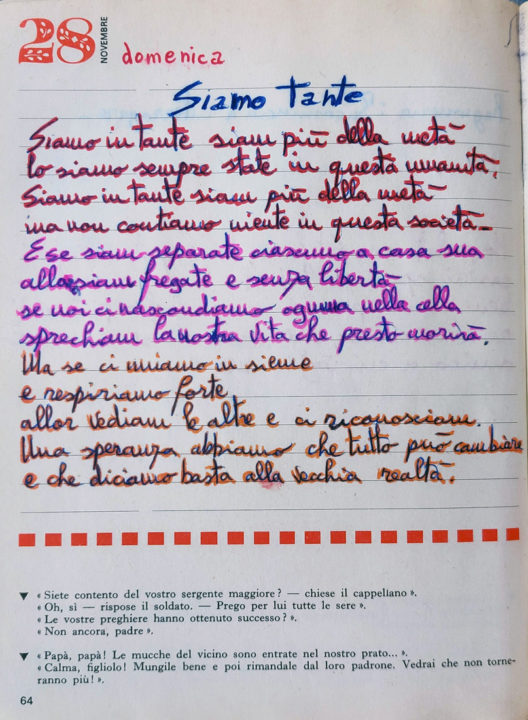 28
NOVEMBRE
domenica
Siamo Tante
Siamo in tante siam più della metà
lo siamo sempre state in questa umanità.
Siamo in tante siam più della metà
ma non contiamo niente in questa società.
E se siam separate ciascuno a casa sua
allor siam fregate e senza libertà
se noi ci nascondiamo ognuna nella cella
sprechiam la nostra vita che presto morirà.
Ma se ci uniamo in sieme
e respiriamo forte
allor vediam le altre e ci riconosciam.
Una speranza abbiamo che tutto può cambiare
e che diciamo basta alla vecchia realtà.
▼ « Siete contento del vostro sergente maggiore ? — chiese il cappellano ».
« Oh, sì — rispose il soldato. — Prego per lui tutte le sere ».
« Le vostre preghiere hanno ottenuto successo ? ».
« Non ancora, padre ».
▼ « Papà, papà! Le mucche del vicino sono entrate nel nostro prato... ».
« Calma, figliolo! Mungile bene e poi rimandale dal loro padrone. Vedrai che non torne-
ranno più ! ».
64